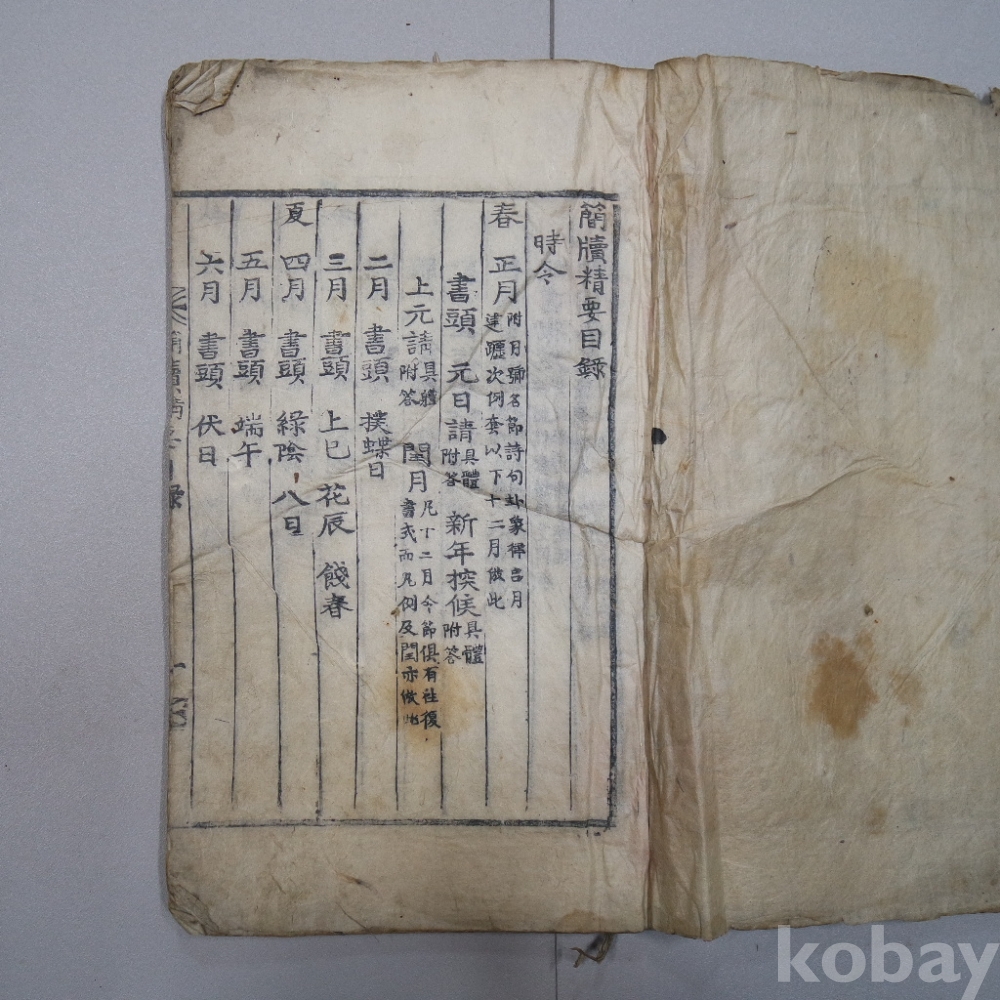 簡牘精要目錄
時令
春 正月 附月號名節詩句卦象律呂月
建躔次例套以下十二月倣此
書頭 元日請 具體附答 新年探候 具體附答
上元請 具體附答 閏月 凡十二月令節俱有往復
書式而凡例及閏亦倣此
二月 書頭 撲蝶日
三月 書頭 上巳 花辰 餞春
夏 四月 書頭 綠陰 八日
五月 書頭 端午
六月 書頭 伏日
kobay